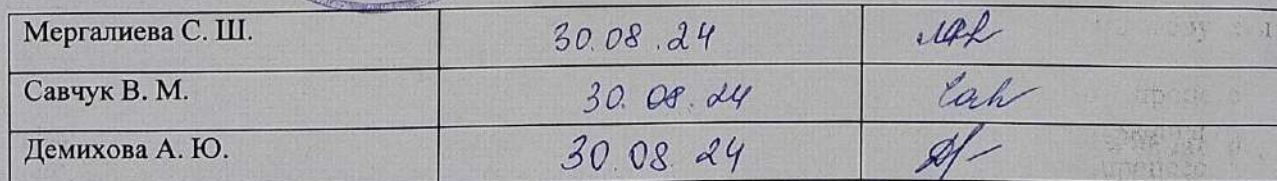 Мергалиева С. Ш. 30.08.24
Савчук В. М. 30.08.24
Демихова А. Ю. 30.08.24